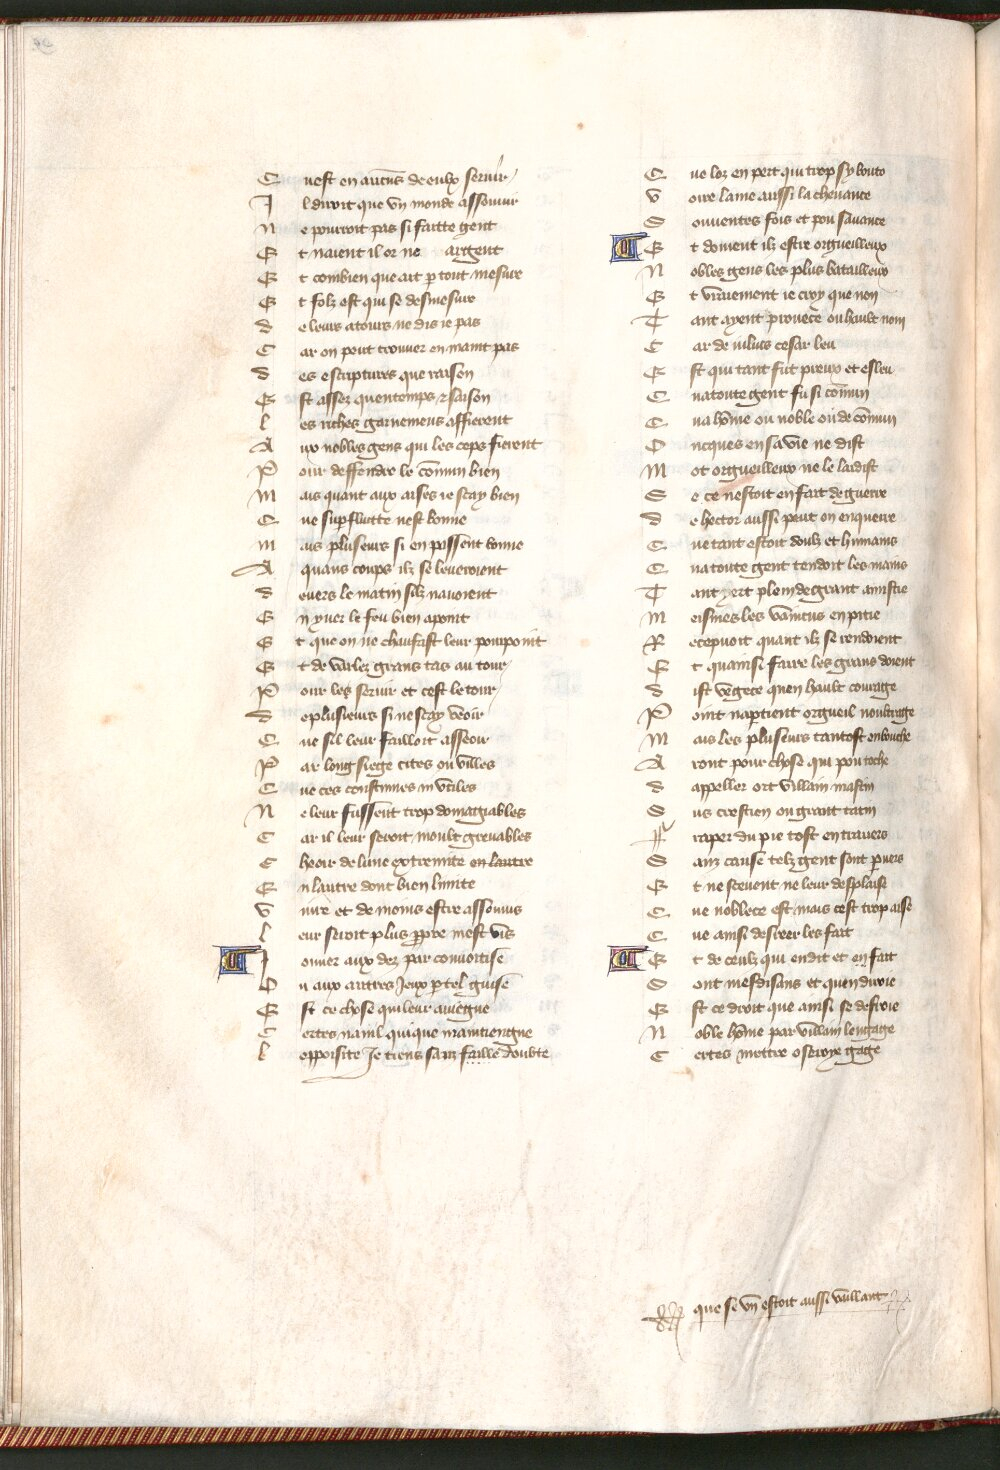 C uest en aucūs de eulx seruir
I l diroit que vn monde assouuir
N e pourroit pas si faitte gent
E t naient il or ne argent
E t combien que art ꝑ tout mesure
E t folz est qui se desmesure
d e leurs atours ne dis ie pas
C ar on peut trouuer en maint pas
d es escriptures que raison
E st assez quentemps ⁊ saison
l es riches garnemens affierent
A ux nobles gens qui les ceps fierent
P our deffendre le cōmun bien
M ais quant aux aises ie scay bien
C ue suꝑfluitte nest bonne
m ais pluseurs si en passent bonne
A quans coups ilz se leueroient
d euers le matin silz nauoient
E n yuer le feu bien apoint
E t que on ne chaufast leur pourpoint
E t de varlez grans tas au tour
P our les seruir et cest le tour
d e plusieurs si ne scay veoir
C ue sil leur failloit asseoir
P ar long siege cites ou villes
C ue ces coustumes inutiles
N e leur fussent trop domagiables
C ar il leur seroit moult greuables
C heoir de lune extremite en lautre
E n lautre dont bien limite
V iure et de moins estre assouuis
l eur seroit plus ꝓpre mest vis
I ouuer aux dez par conuoitise
O u aux autres Jeux ꝑ tel guise
E st ce chose qui leur auiegne
C ertes nanil qui que maintiengne
l opposite Je tiens sanz faille doubte
C ue loz en pert qui trop sy boute
V oire lame aussi la cheuance
S ouuentes fois et pou sauance
E t doiuent ilz estre orgueilleux
N obles gens les plus batailleux
E t vraiement ie croy que non
T ant ayent prouece ou hault nom
C ar de iulius cesar leu
E st qui tant fut preux et esleu
C ua toute gent fu si cōmun
C ua hōme ou noble ou de cōmun
O ncques en sa vie ne dist
M ot orgueilleux ne le laidist
S e ce nestoit en fait de guerre
d e hector aussi peut on enquerre
C ue tant estoit doulz et humains
C ua toute gent tendoit les mains
T ant yert plein de grant amistie
M eismes les vaincus en pitie
R eceuoit quant ilz se rendoient
E t quainsi faire les grans doient
d ist vegece quen hault courage
P oint naꝑtient orgueil noultrage
M ais les pluseurs tantost en bouche
A ront pour chose qui pou toche
d appeller ort villain mastin
S us crestien ou grant tatin
ff raper du pie tost en trauers
S anz cause telz gent sont ꝑuers
E t ne sceuent ne leur desplaise
C ue noblece est mais cest trop aise
C ue ainsi desirer les fait
E t de ceulz qui en dit et en fait
S ont mesdisans et quen diroie
E st ce droit que ainsi se desroie
N oble hōme par villain lengage
C ertes mettre oseroye gage
que se vn estoit aussi vaillant